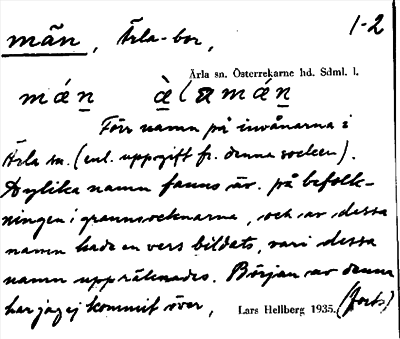 män, Ärla-bor, 1-2
Ärla sn. Österrekarne hd. Sdml. l.
mǽn̲ æ̀lamǽn̲
Förr namn på invånarna i
Ärla sn. (enl. uppgift fr. denna socken).
Dylika namn fanns äv. på befolk-
ningen i grannsocknarna, och av dessa
namn hade en vers bildats, vari dessa
namn uppräknades. Början av denna
har jag ej kommit över,
Lars Hellberg 1935. (forts)